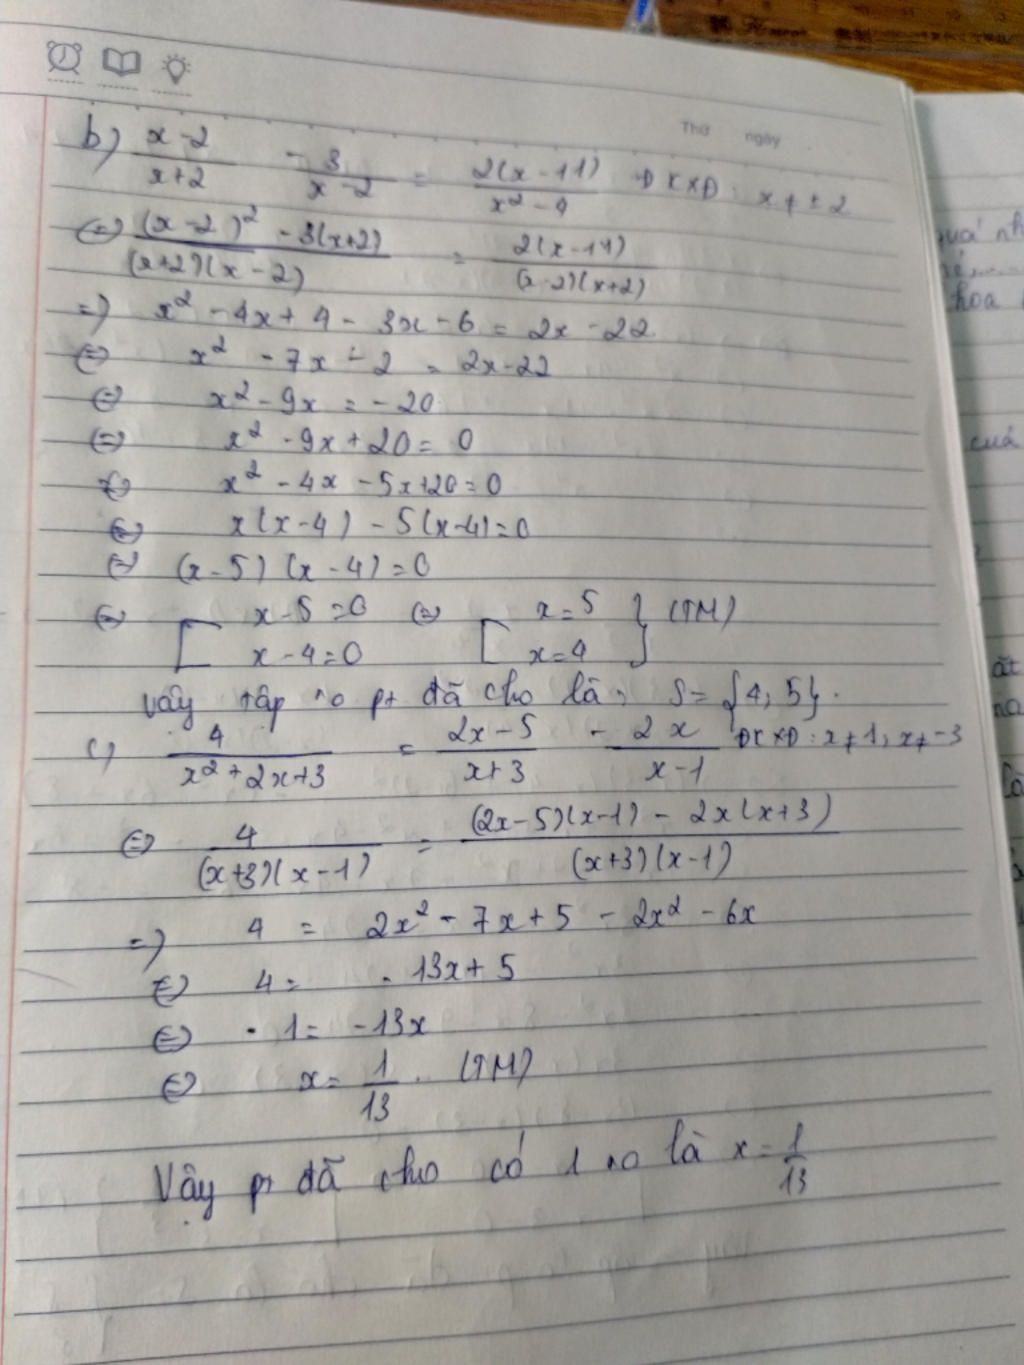 Thứ ngày
b) (x-2)/(x+2) - 3/(x-2) = 2(x-11)/(x²-4) ĐKXĐ: x ≠ ±2
⇔ ((x-2)² - 3(x+2))/((x+2)(x-2)) = 2(x-11)/((x-2)(x+2))
⇒ x² - 4x + 4 - 3x - 6 = 2x - 22
⇔ x² - 7x - 2 = 2x - 22
⇔ x² - 9x = -20
⇔ x² - 9x + 20 = 0
⇔ x² - 4x - 5x + 20 = 0
⇔ x(x-4) - 5(x-4) = 0
⇔ (x-5)(x-4) = 0
⇔ [ x-5=0 ⇔ [ x=5 } (TM)
x-4=0 x=4
Vậy tập no pt đã cho là: S = {4; 5}.
c) 4/(x²+2x+3) = (2x-5)/(x+3) - 2x/(x-1) ĐKXĐ: x ≠ 1; x ≠ -3
⇔ 4/((x+3)(x-1)) = ((2x-5)(x-1) - 2x(x+3))/((x+3)(x-1))
⇒ 4 = 2x² - 7x + 5 - 2x² - 6x
⇔ 4 = - 13x + 5
⇔ - 1 = -13x
⇔ x = 1/13. (TM)
Vậy pt đã cho có 1 no là x = 1/13